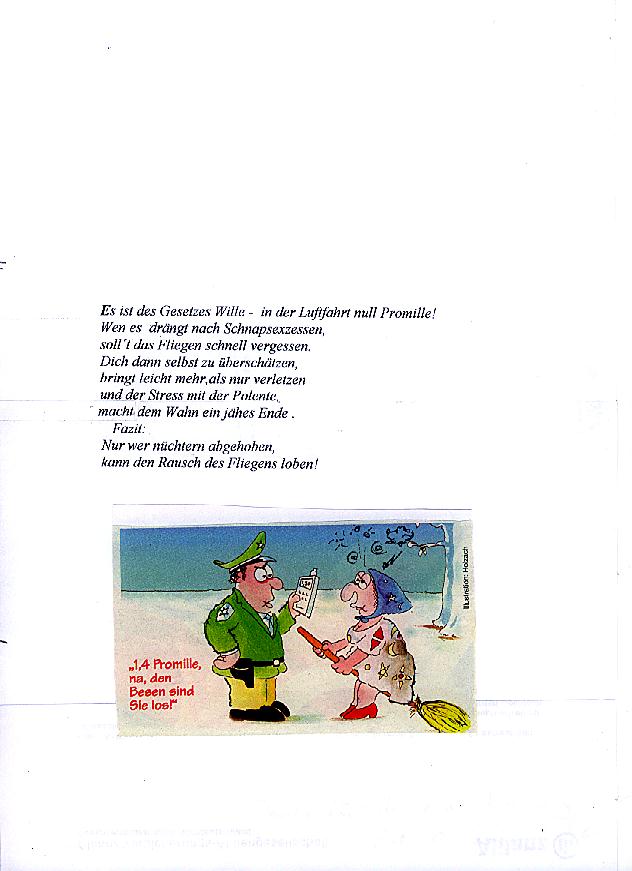 Es ist des Gesetzes Wille - in der Luftfahrt null Promille!
Wen es drängt nach Schnapsexzessen,
soll´t das Fliegen schnell vergessen.
Dich dann selbst zu überschätzen,
bringt leicht mehr,als nur verletzen
und der Stress mit der Polente,
macht dem Wahn ein jähes Ende .
Fazit:
Nur wer nüchtern abgehoben,
kann den Rausch des Fliegens loben!
Illustration: Holzach
„1,4 Promille,
na, den
Besen sind
Sie los!"
Allianz